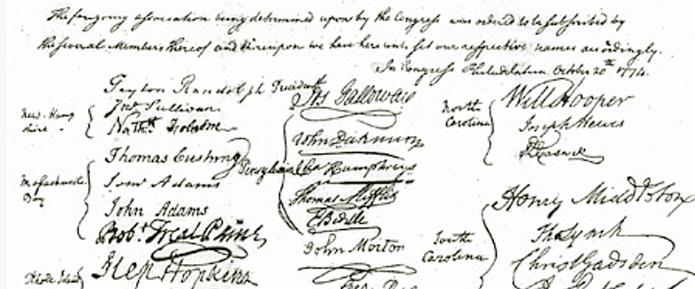 The foregoing association being determined upon by the Congress, was ordered to be subscribed by
the several Members thereof and thereupon we have hereunto set our respective names accordingly.
In Congress Philadelphia October 20th 1774.
Peyton Randolph President
New Hamp
shire
Jno Sullivan
Nathl Folsom
Massachusetts
Bay
Thomas Cushing
Saml Adams
John Adams
Robt Treat Paine
Rhode Island
Step Hopkins
Pensylvania
Jos Galloway
John Dickinson
Cha Humphreys
Thomas Mifflin
E Biddle
John Morton
Geo
North
Carolina
Will Hooper
Joseph Hewes
R Caswell
South
Carolina
Henry Middleton
Tho Lynch
Christ Gadsden